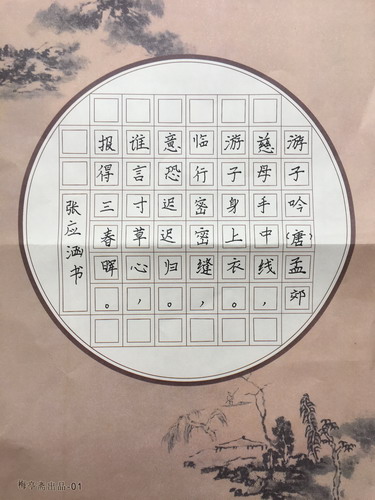 游子吟(唐)孟郊
慈母手中线，
游子身上衣。
临行密密缝，
意恐迟迟归。
谁言寸草心，
报得三春晖。
张应涵书
梅亭斋出品-01